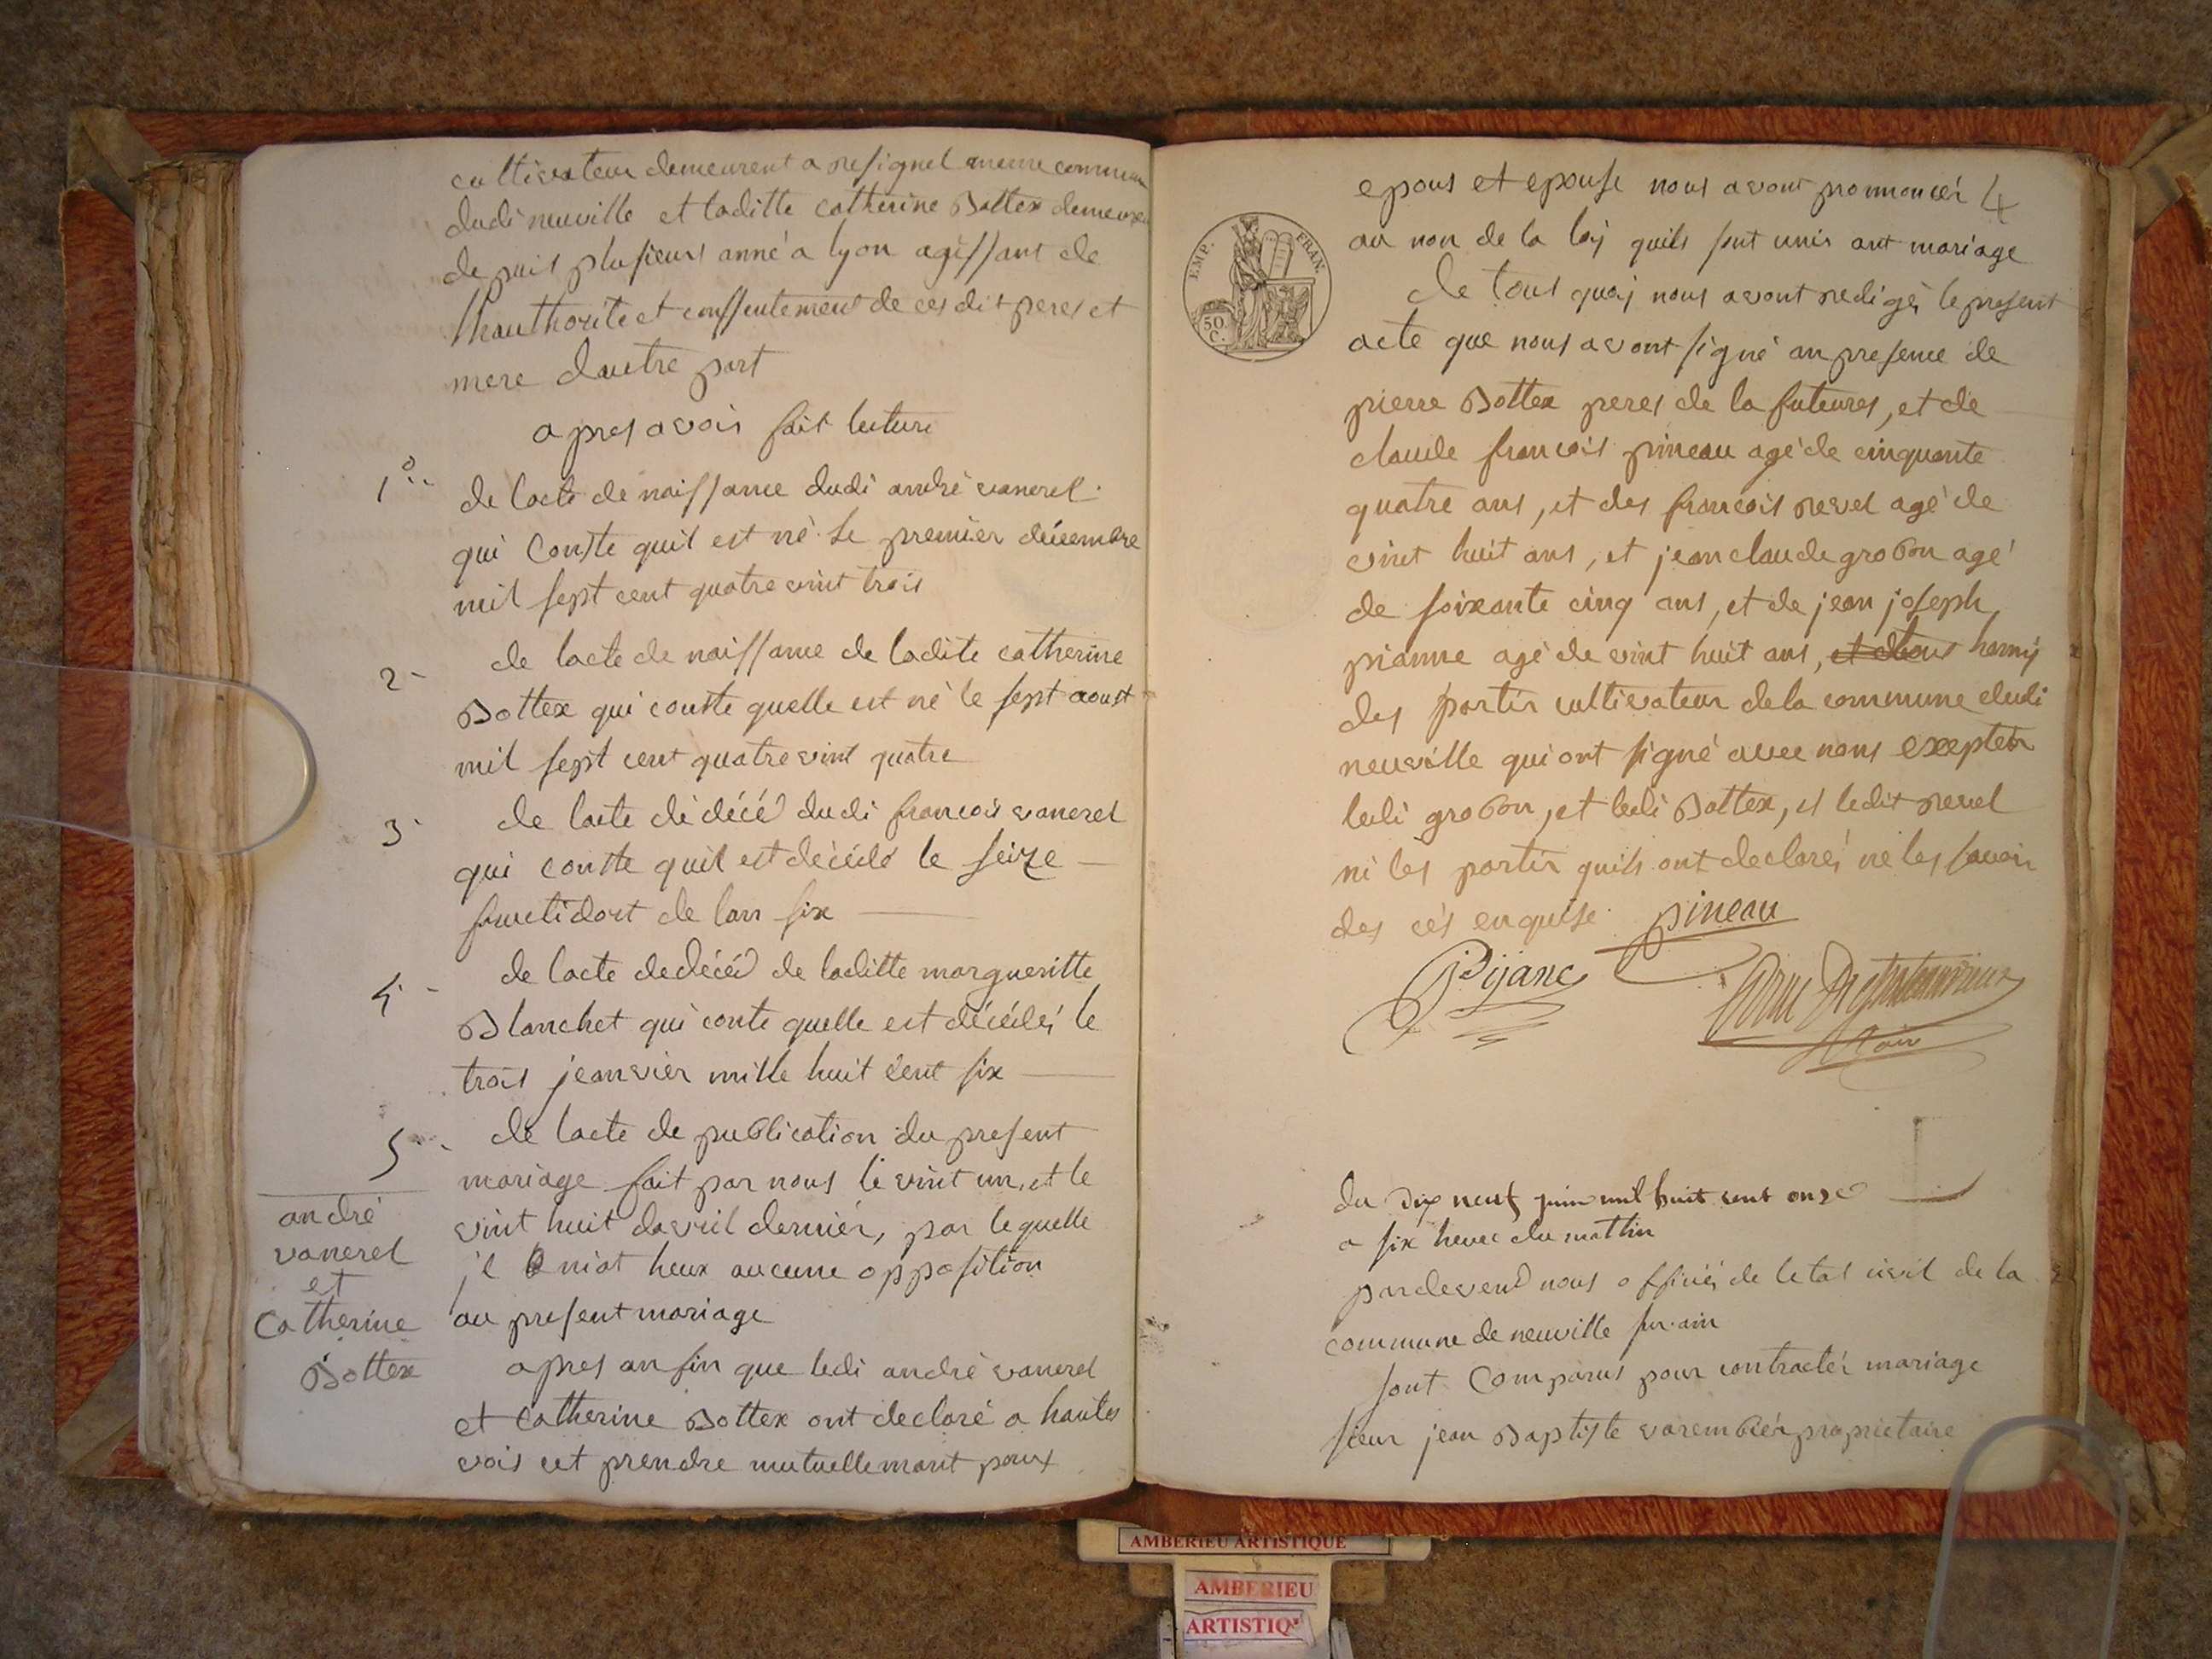 cultivateur demeurent a resignel meme commune
dudi neuville et laditte catherine Bottex demeuren
depuis plusieurs anné a lyon agissant de
lhauthorite et conssentement de ces dit peres et
mere dautre part
apres avoir fait lecture
1o de lacte de naissance dudi andré vanerel
qui Conste quil est né le premier décembre
mil sept cent quatre vint trois
2 de lacte de naissance de ladite catherine
Bottex qui conste quelle est né le sept aoust
mil sept cent quatre vint quatre
3 de lacte de décé dudi francois vanerel
qui conste quil est décédé le seize
fructidort de lan six
4 de lacte de décéd de laditte margueritte
Blanchet qui conte quelle est décédéé le
trois jeanvier mille huit cent six
5 de lacte de publication du present
mariage fait par nous le vint un, et le
vint huit davril dernier, par le quelle
il niat heux aucune opposition
au present mariage
apres anfin que ledi andré vanerel
et Catherine Bottex ont declaré a hautes
vois cet prendre mutuellemant pour
andré
vanerel
et
Catherine
Bottex
4
epous et epouse nous avont pronnoncér
au non de la loij quils sont unis ant mariage
EMP. FRAN.
50 C.
de tous quoij nous avont redigé le present
acte que nous avont signé an presence de
pierre Bottex peres de la futeures, et de
claude francois pineau agé de cinquante
quatre ans, et des francois revel agé de
vint huit ans, et jean claude grobon agé
de soixante cinq ans, et de jean joseph
pianne agé de vint huit ans, hamij
des partir cultivateur de la commune dudi
neuville qui ont signé avec nous excepter
ledi grobon, et ledi Bottex, et ledit revel
ni les partir quils ont declaréi ne les savoir
des cés enquise
pineau
maire
du Dix neuf juin mil huit cent onze
a six heure du mathin
pardevend nous officié de letat civil de la
commune de neuville sur ain
sont Comparus pour contracter mariage
sieur jean Baptiste varembier proprietaire
AMBERIEU ARTISTIQUE
AMBERIEU
ARTISTIQ